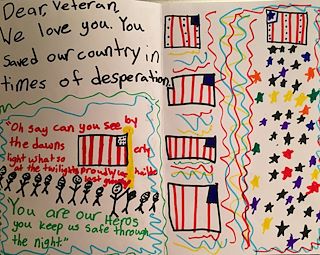 Dear, Veteran,
We love you. You
saved our country in
times of desperation.
"Oh say can you see by
the dawns erly
light what so proudly we hailed
at the twilights last
You are our Heros
you keep us safe through
the night."